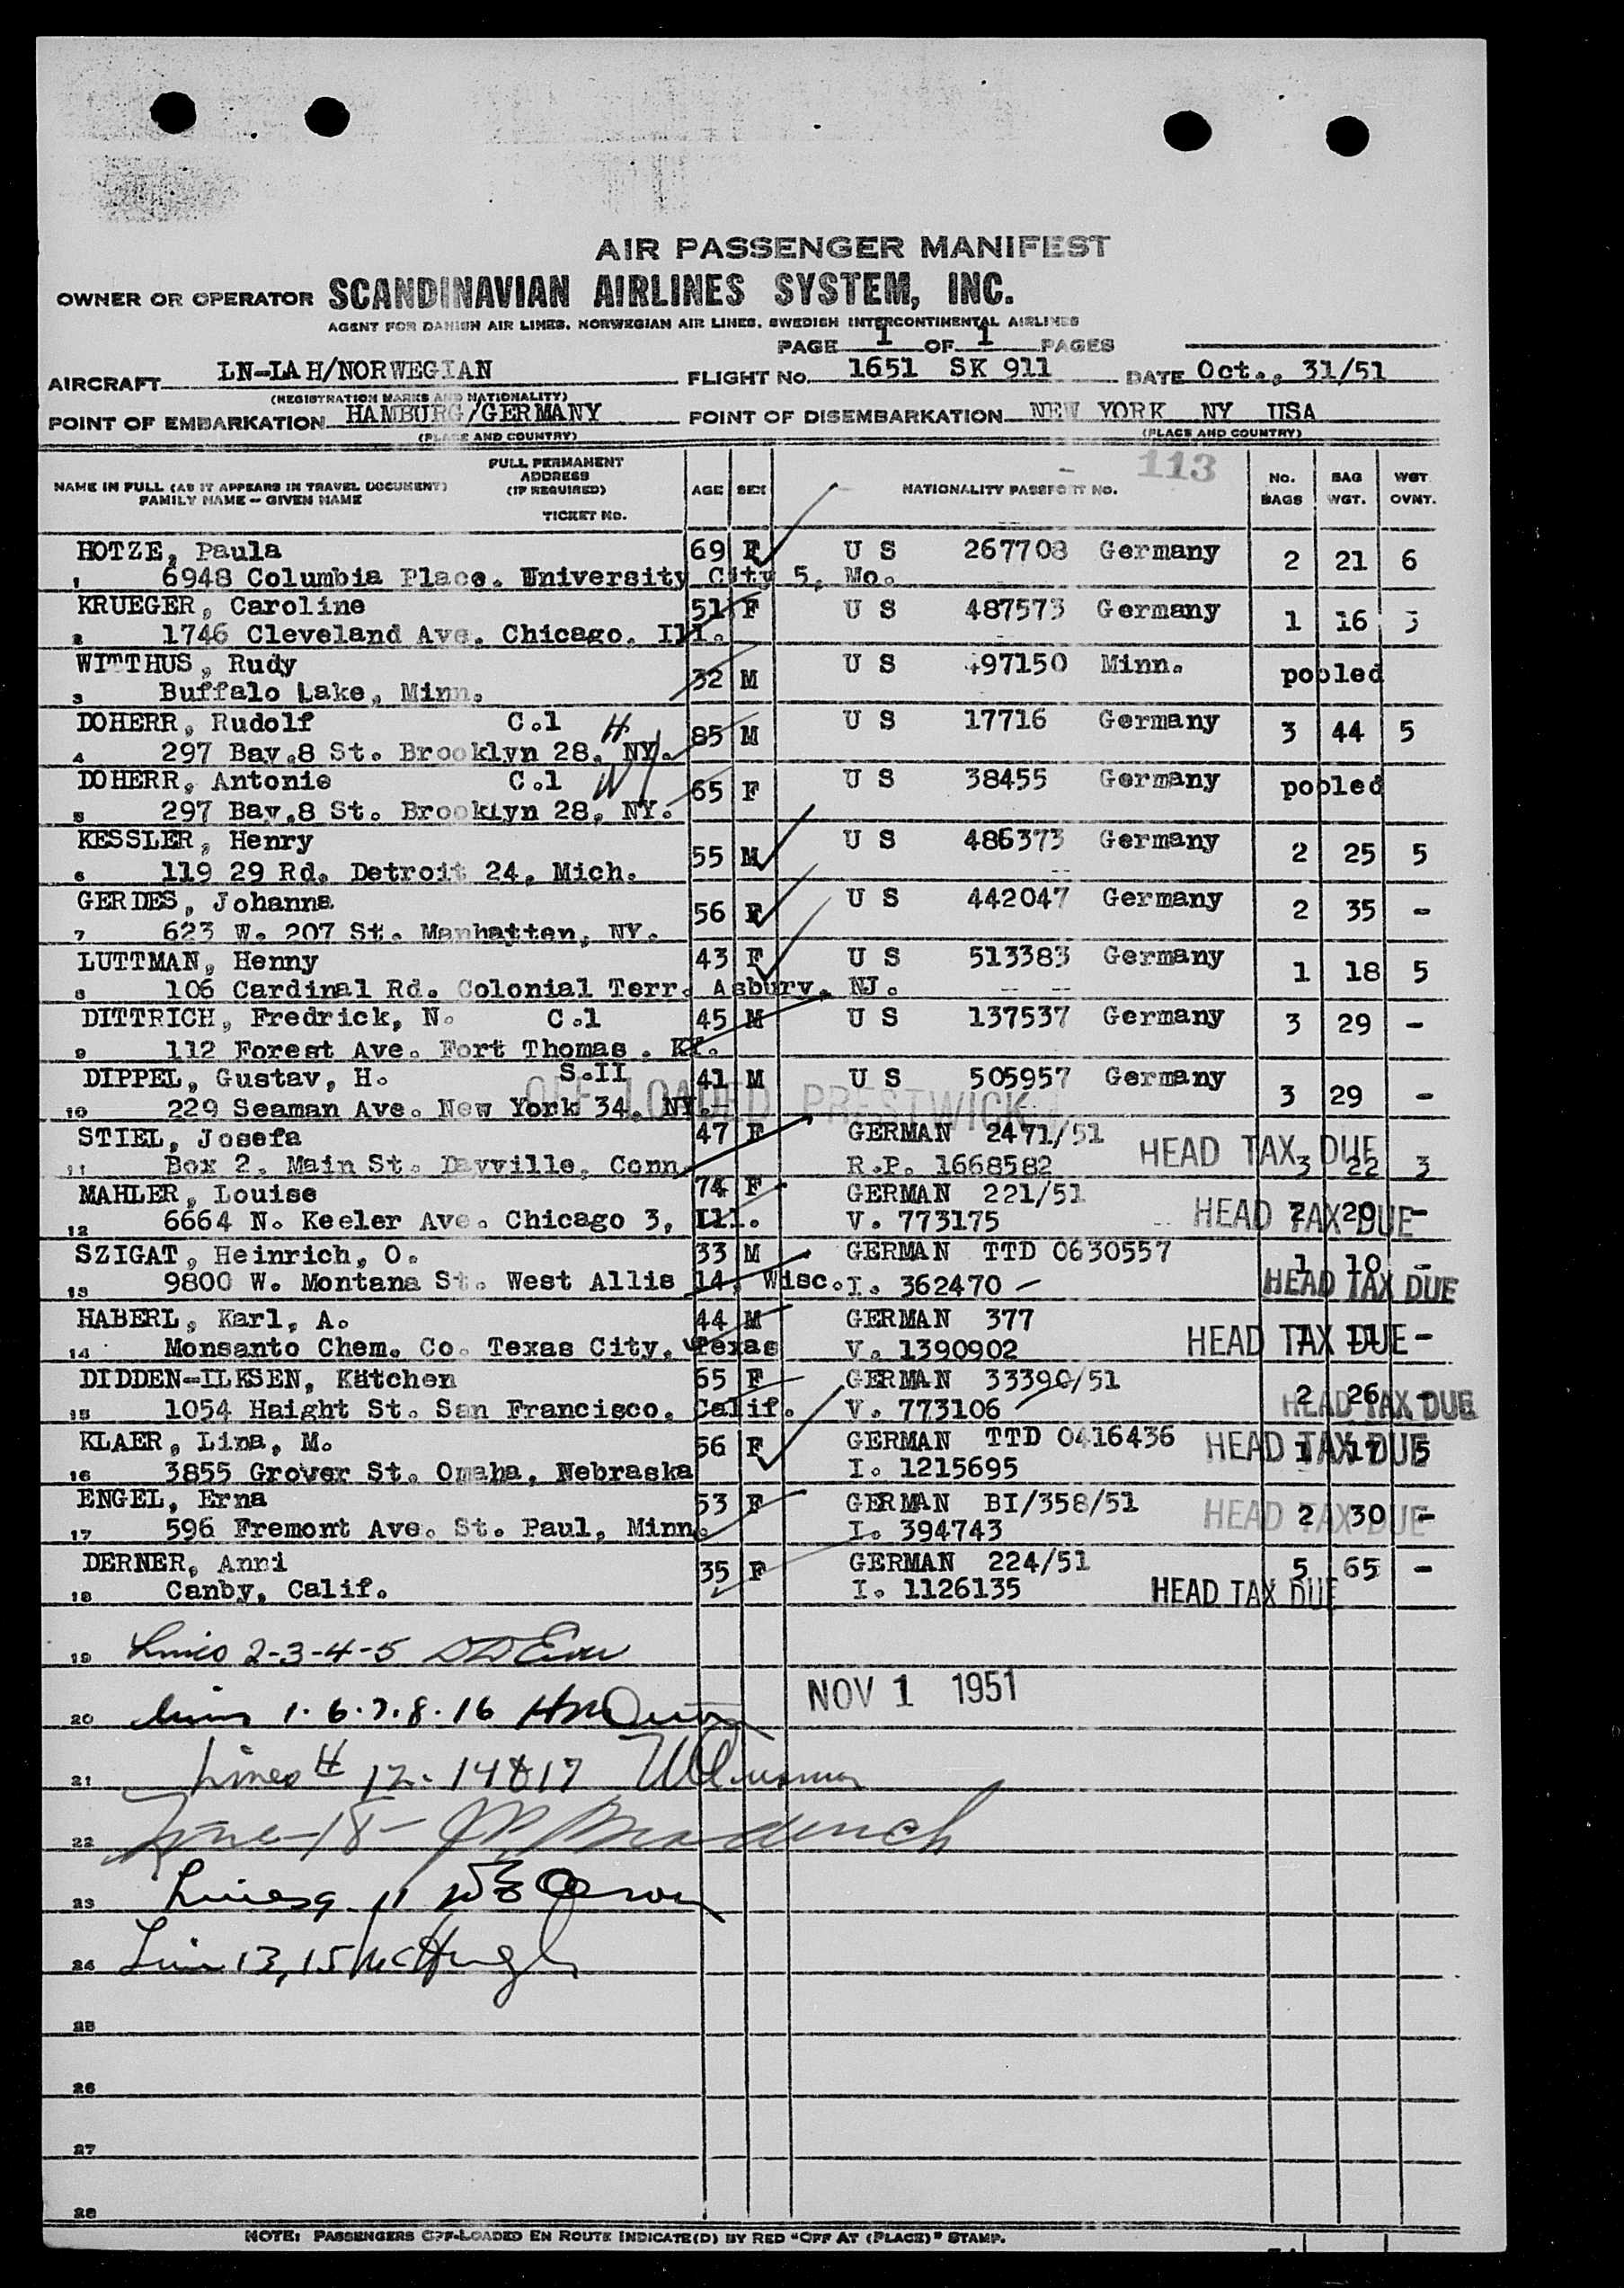 AIR PASSENGER MANIFEST
OWNER OR OPERATOR SCANDINAVIAN AIRLINES SYSTEM, INC.
AGENT FOR DANISH AIR LINES. NORWEGIAN AIR LINES. SWEDISH INTERCONTINENTAL AIRLINES
PAGE 1 OF 1 PAGES
AIRCRAFT LN-IAH/NORWEGIAN FLIGHT No. 1651 SK 911 DATE Oct., 31/51
(REGISTRATION MARKS AND NATIONALITY)
POINT OF EMBARKATION HAMBURG/GERMANY POINT OF DISEMBARKATION NEW YORK NY USA
(PLACE AND COUNTRY) (PLACE AND COUNTRY)
113
NAME IN FULL (AS IT APPEARS IN TRAVEL DOCUMENT) FAMILY NAME - GIVEN NAME FULL PERMANENT ADDRESS (IF REQUIRED) TICKET No. AGE SEX NATIONALITY PASSPORT NO. No. BAGS BAG WGT. WGT. OVNT.
HOTZE, Paula 69 F U S 267708 Germany 2 21 6
1 6948 Columbia Place. University City 5, Mo.
KRUEGER, Caroline 51 F U S 487573 Germany 1 16 3
2 1746 Cleveland Ave. Chicago, Ill.
WITTHUS, Rudy 32 M U S 497150 Minn. pooled
3 Buffalo Lake, Minn.
DOHERR, Rudolf C.1 H 85 M U S 17716 Germany 3 44 5
4 297 Bay.8 St. Brooklyn 28, NY.
DOHERR, Antonie C.1 W 65 F U S 38455 Germany pooled
5 297 Bay.8 St. Brooklyn 28, NY.
KESSLER, Henry 55 M U S 486373 Germany 2 25 5
6 119 29 Rd. Detroit 24, Mich.
GERDES, Johanna 56 F U S 442047 Germany 2 35 -
7 623 W. 207 St. Manhatten, NY.
LUTTMAN, Henny 43 F U S 513383 Germany 1 18 5
8 106 Cardinal Rd. Colonial Terr. Asbury, NJ.
DITTRICH, Fredrick, N. C.1 45 M U S 137537 Germany 3 29 -
9 112 Forest Ave. Fort Thomas, KY.
DIPPEL, Gustav, H. S.II 41 M U S 505957 Germany 3 29 -
10 229 Seaman Ave. New York 34, NY.
OFF LOADED PRESTWICK
STIEL, Josefa 47 F GERMAN 2471/51 HEAD TAX DUE 3 22 3
11 Box 2, Main St. Dayville, Conn. R.P. 1668582
MAHLER, Louise 74 F GERMAN 221/51 HEAD TAX DUE 2 20 -
12 6664 N. Keeler Ave. Chicago 3, Ill. V. 773175
SZIGAT, Heinrich, O. 33 M GERMAN TTD 0630557 1 10 -
13 9800 W. Montana St. West Allis 14, Wisc. I. 362470 HEAD TAX DUE
HABERL, Karl, A. 44 M GERMAN 377 HEAD TAX DUE 1 11 -
14 Monsanto Chem. Co. Texas City, Texas V. 1390902
DIDDEN-ILKSEN, Kätchen 65 F GERMAN 33390/51 2 26 -
15 1054 Haight St. San Francisco, Calif. V. 773106 HEAD TAX DUE
KLAER, Lina, M. 56 F GERMAN TTD 0416436 HEAD TAX DUE 1 17 5
16 3855 Grover St. Omaha, Nebraska I. 1215695
ENGEL, Erna 53 F GERMAN BI/358/51 HEAD TAX DUE 2 30 -
17 596 Fremont Ave. St. Paul, Minn. I. 394743
DERNER, Anni 35 F GERMAN 224/51 5 65 -
18 Canby, Calif. I. 1126135 HEAD TAX DUE
19 Lines 2-3-4-5
20 Lines 1.6.7.8.16 NOV 1 1951
21 Lines # 12-14&17
22 Line-18-
23 Lines 9 11
24 Line 13, 15 McHugh
25
26
27
28
NOTE: PASSENGERS OFF-LOADED EN ROUTE INDICATE(D) BY RED "OFF AT (PLACE)" STAMP.